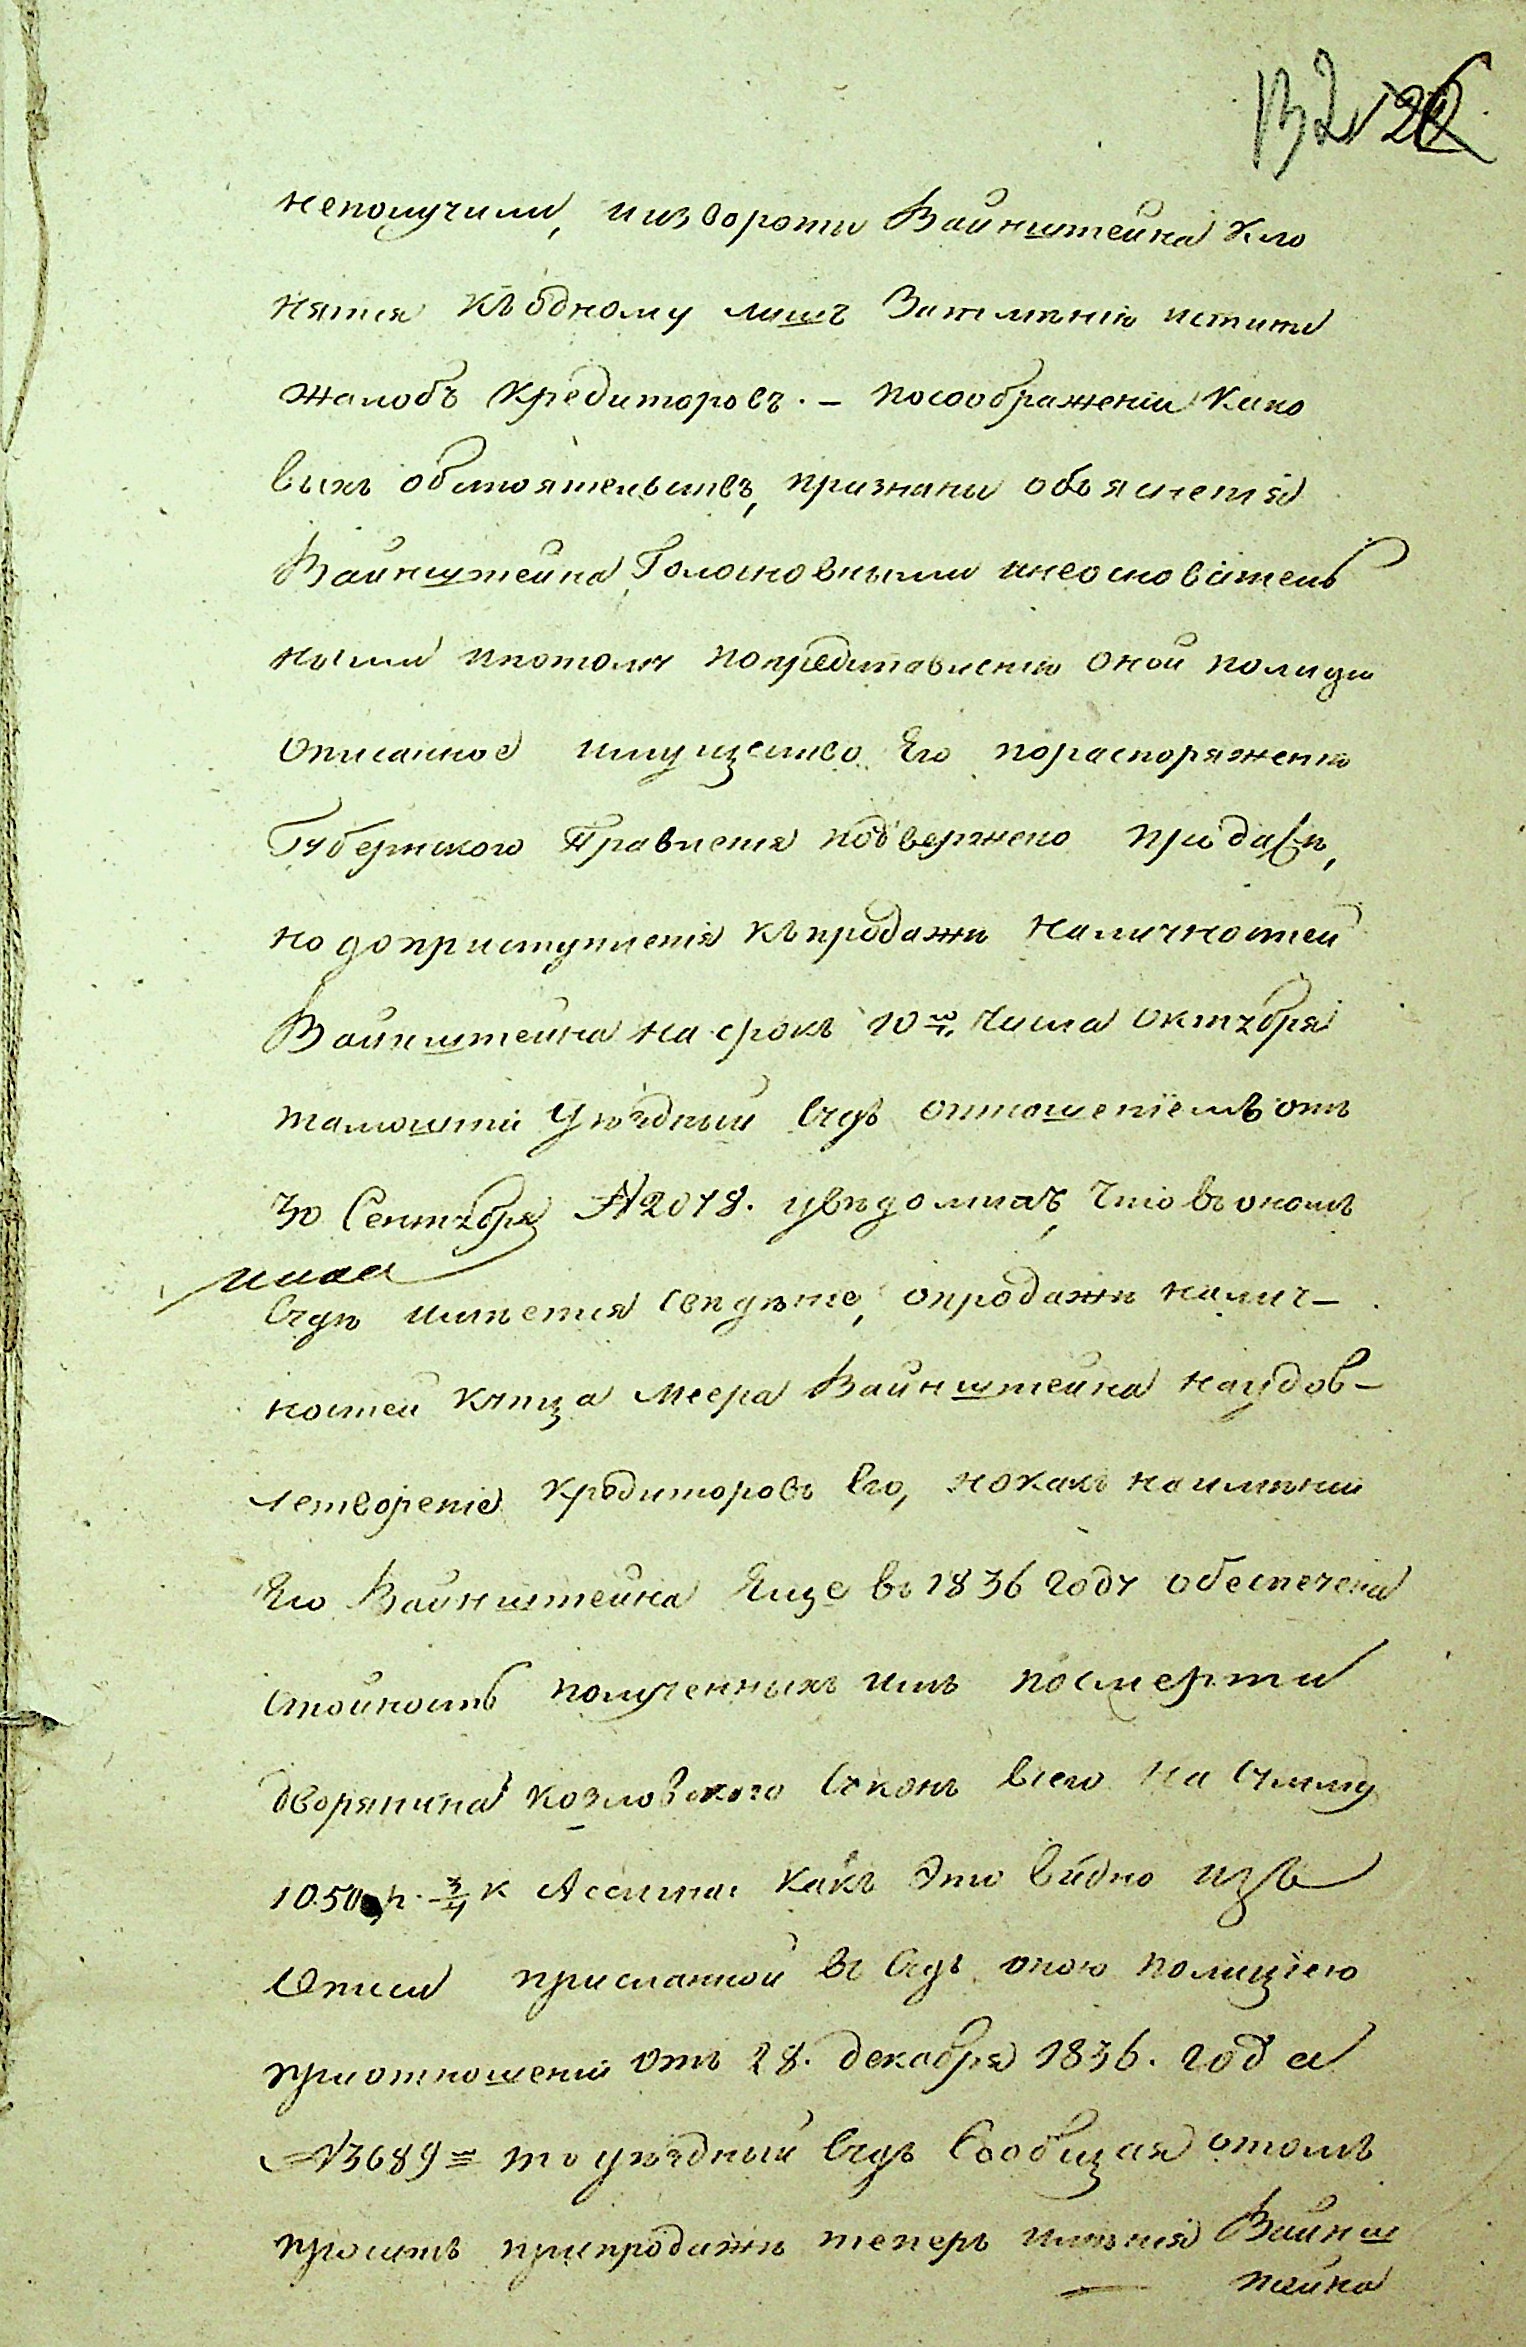 132 126
неполучили, и извороти Вайнштейна кло
нятся къ одному лишъ Затмѣнію истини
жалобъ кредиторовъ. — посоображеніи како
выхъ обстоятельствъ, признани объясненія
Вайнштейна Голословными инеосновáтель
ными ипотому попредставленію оной полиціи
Описанное имущество Его пораспоряженію
Губернского Правленія подвержено продажи,
но доприступленія къпродажи наличностей
Вайнштейна на срокъ 10го. числа октября
тамошній Уѣздный Судъ отношеніемъ отъ
30 Сентября №2018. увѣдомилъ, что въ ономъ
Судѣ имѣется свѣденіе, опродажи налич–
ностей купца Меера Вайнштейна наудов–
летвореніе кредиторовъ Его, нокакъ наимѣніи
Его Вайнштейна Еще въ 1836 году обеспечена
стойность полученныхъ имъ посмерти
дворянина козловского суконъ всего на сумму
1050 р. 3/4 к Ассигна: какъ Это видно изъ
Описи присланной въ Судъ оною полиціею
приотношеніи отъ 28. декабря 1836. года
№3689 = то уѣздный Судъ Сообщая отомъ
проситъ припродажи теперь имѣнія Вайнш
тейна